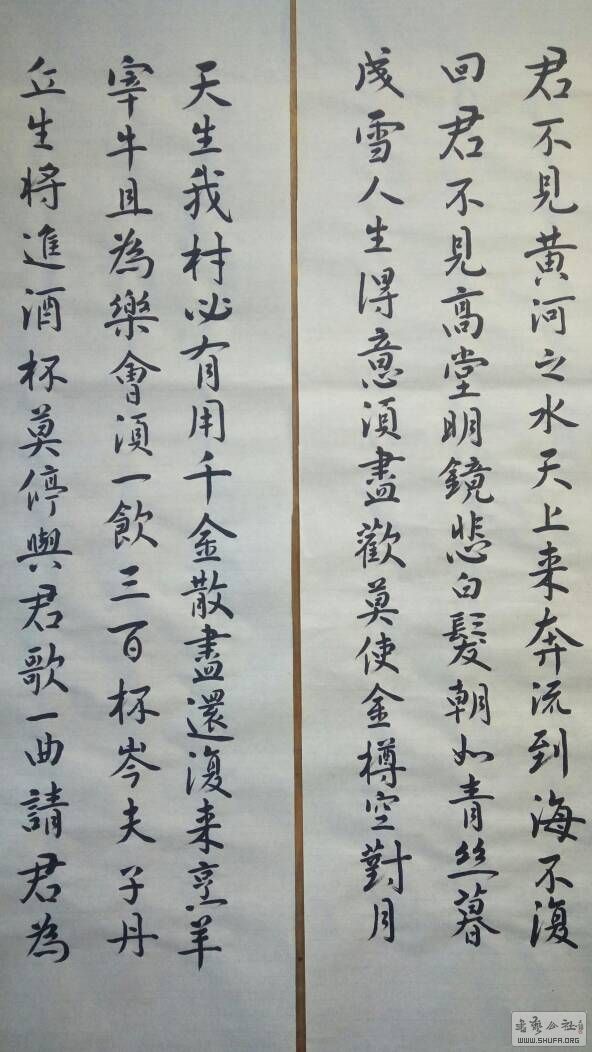 君不見黄河之水天上来奔流到海不復
回君不見高堂明鏡悲白髮朝如青丝暮
成雪人生得意須盡歡莫使金樽空對月
天生我材必有用千金散盡還復来烹羊
宰牛且為樂會須一飲三百杯岑夫子丹
丘生將進酒杯莫停與君歌一曲請君為
书艺公社
WWW.SHUFA.ORG